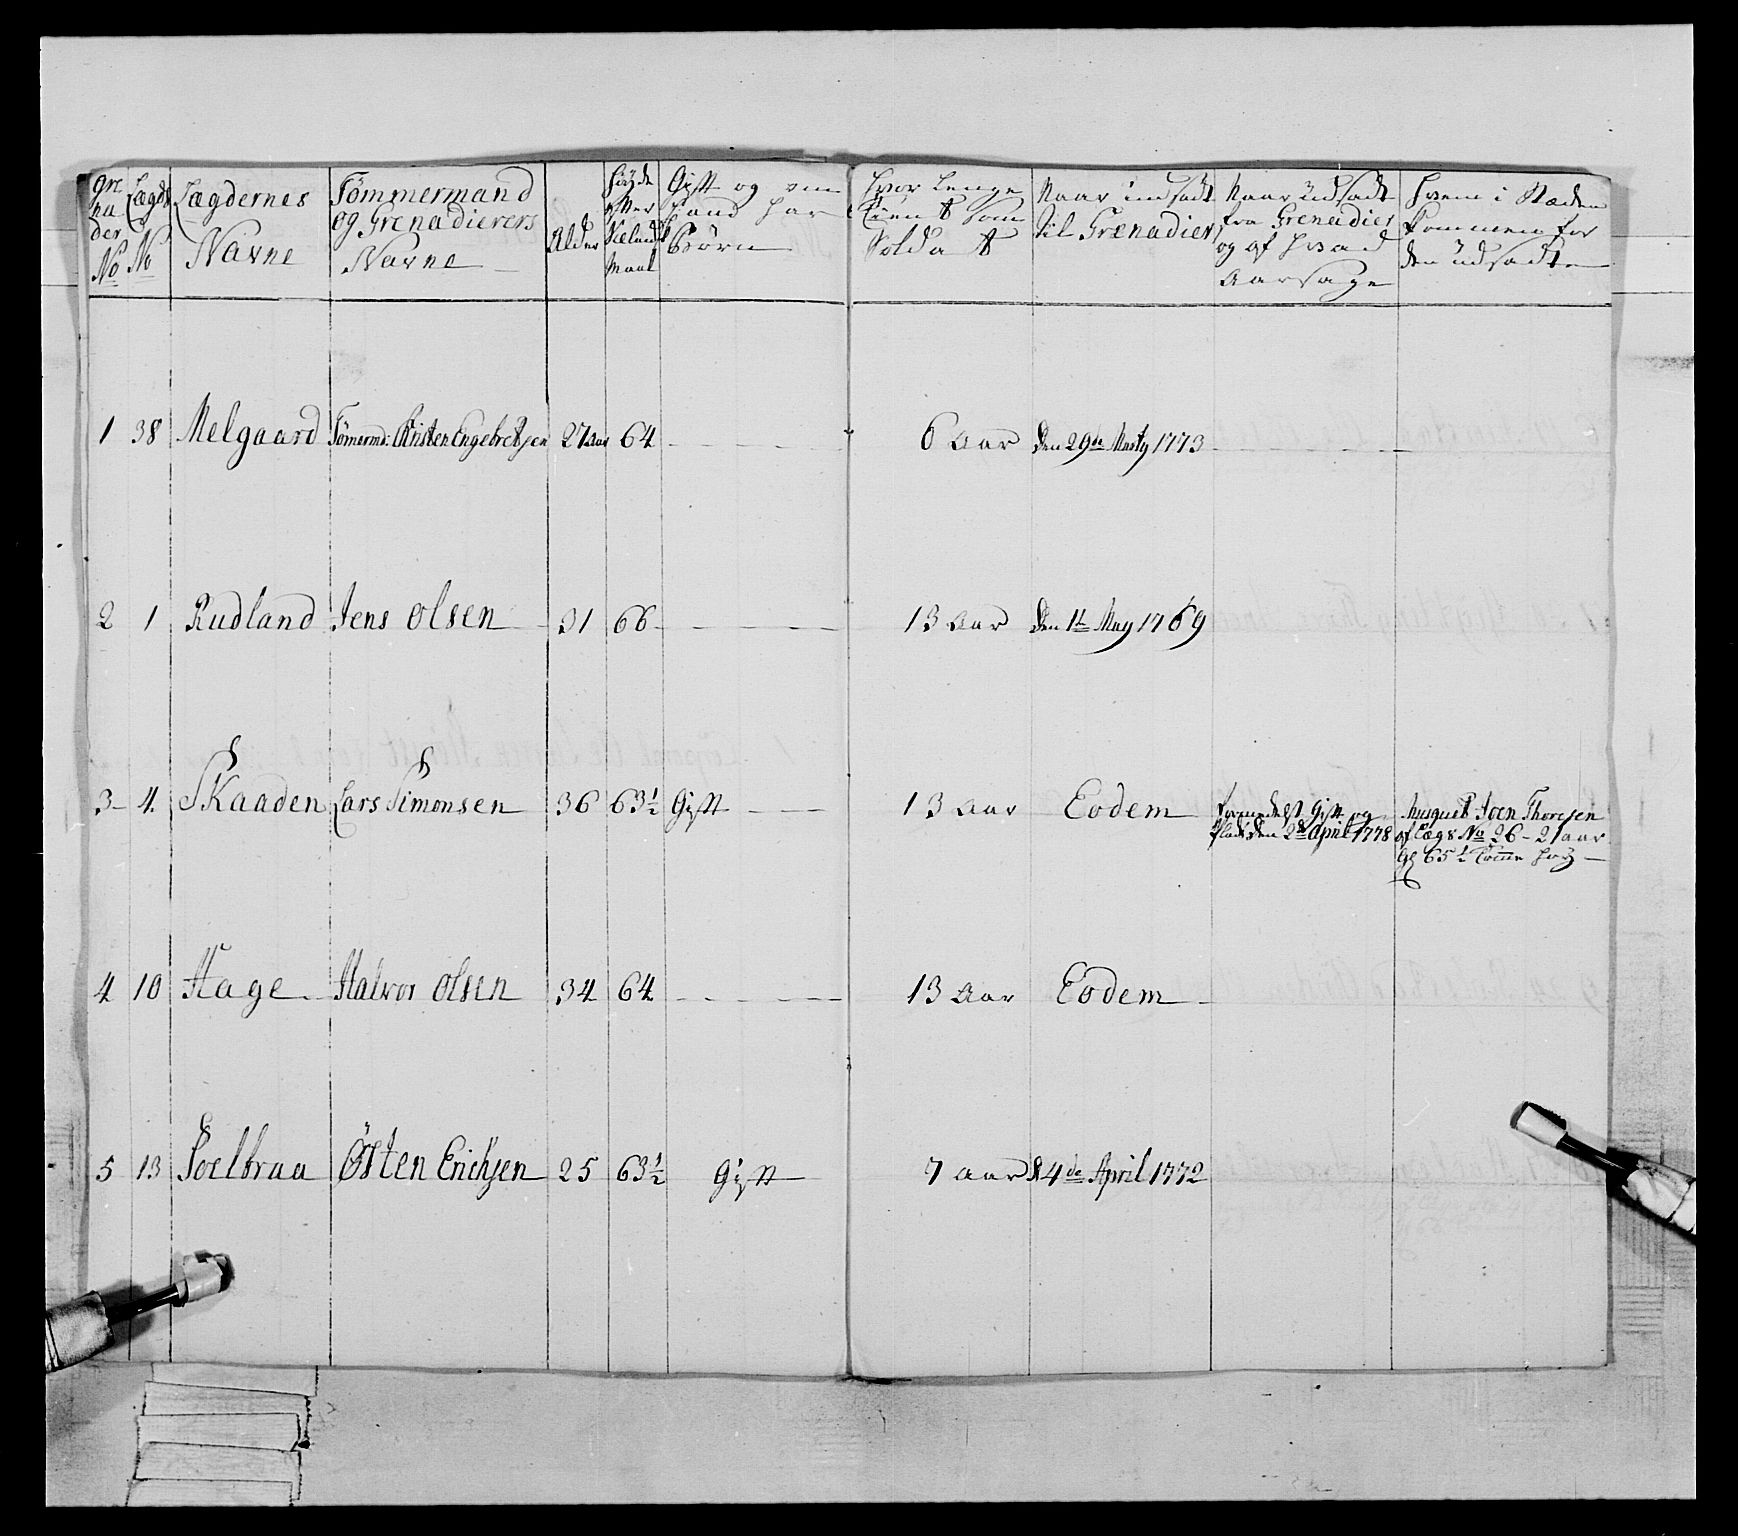 Gre
na
der
No
Lægds
No
Lægdernes
Navne
Tömmermænd
og Grenadierers
Navne
Alder
Höyde
efter
Siælandsk
Maal
Gift og om
hand har
Börn
Hvor Lenge
tient som
Soldat
Naar indsadt
til Grenadier
Naar üdsadt
fra Grenadier
og af hvad
Aarsage
Hvem i Stæden
kommen for
den üdsadte
1 38 Melgaard Tömermd: Christen Engebretsen 27 aar 64 6 Aar Den 29de 1773
2 1 Rudland Jens Olsen 31 66 13 Aar Den 1te May 1769
3 4 Skaaden Lars Simonsen 36 63½ Gift 13 Aar Eodem
formedelst Gift og
den 2de April 1778
Musquet Joen Thoresen
af Læg No 26 - 21 aar
65½ Tomme höy
4 10 Hage Halvor Olsen 34 64 13 Aar Eodem
5 13 Soelbraa Östen Erichsen 25 63½ Gift 7 aar d 4de April 1772